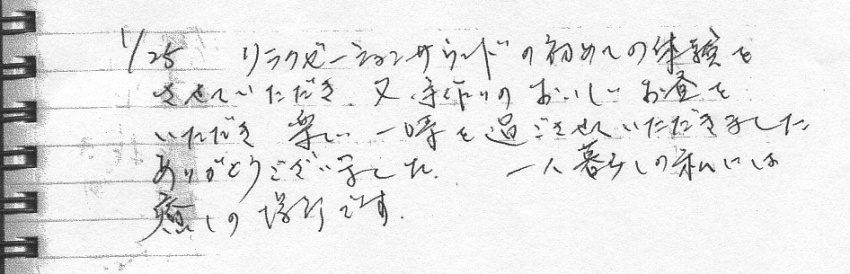 1/25 リラクゼーションサウンドの初めての体験を
させていただき、又、手作りのおいしいお昼を
いただき 楽しい 一時を過ごさせていただきました
ありがとうございました。 一人暮らしの私には
癒しの場所です。